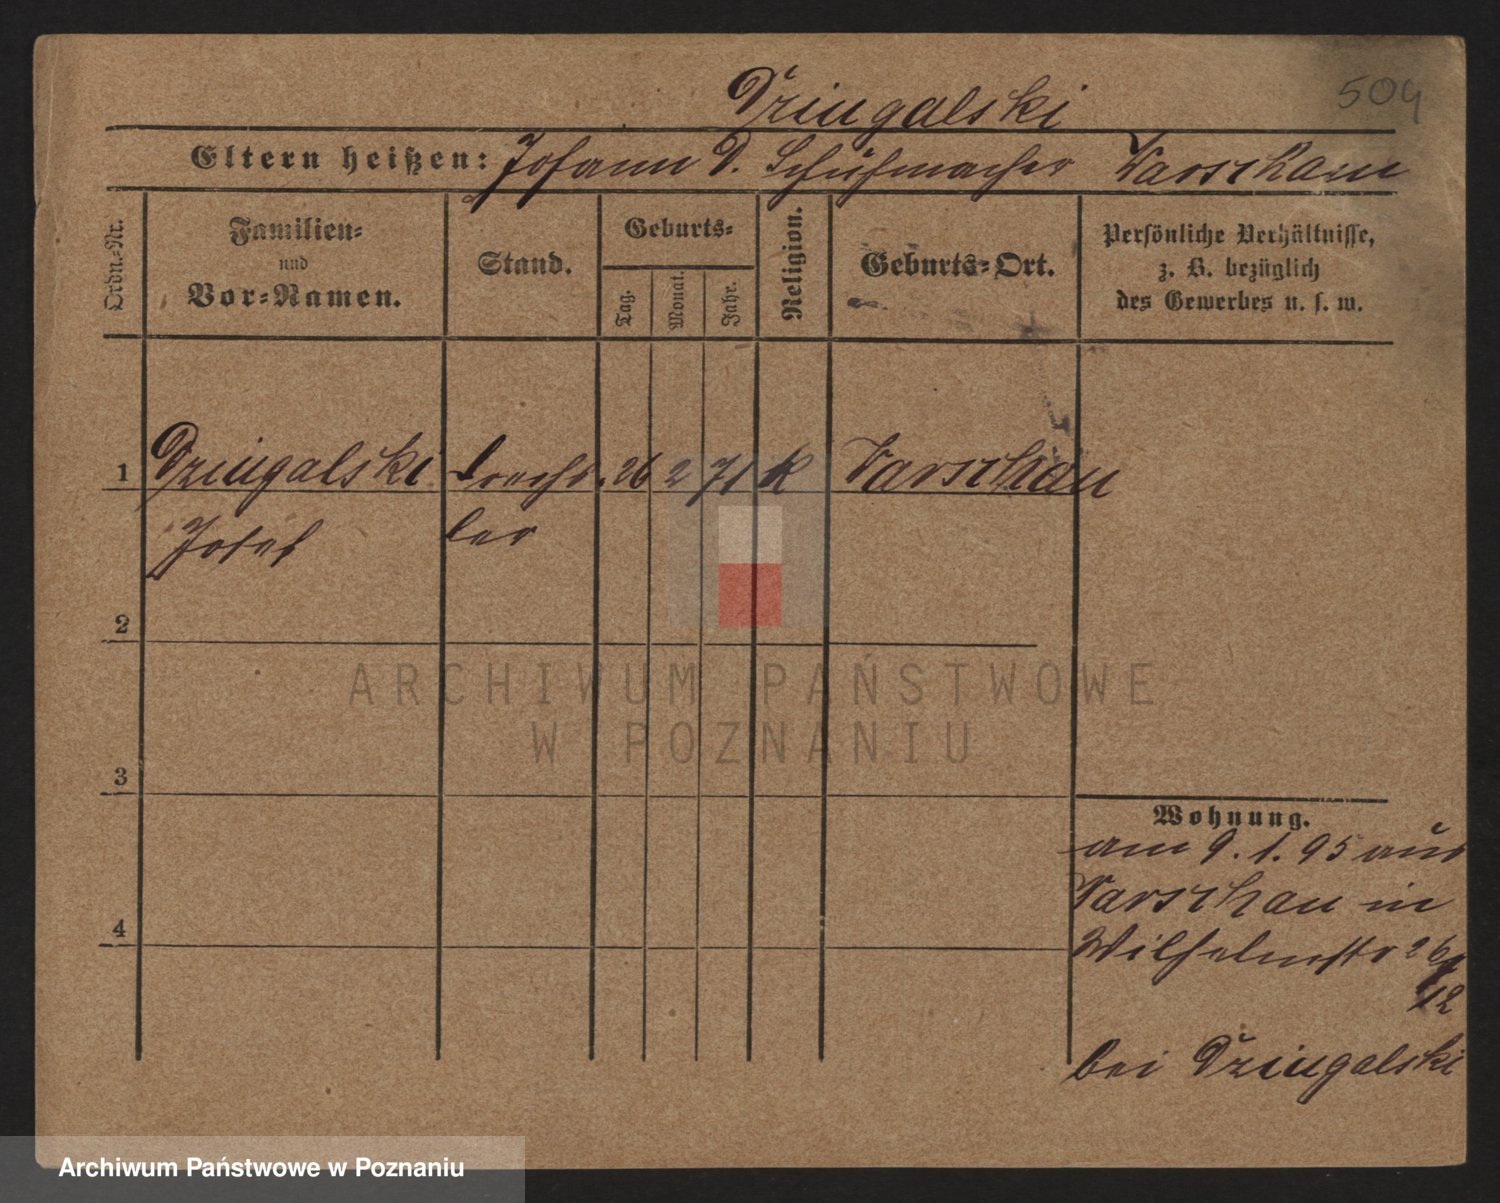 Dziengalski
504
Eltern heißen: Johann D. Schuhmacher Warschau
Ordn.-Nr.
Familien-
und
Vor-Namen.
Stand.
Geburts-
Tag.
Monat.
Jahr.
Religion.
Geburts-Ort.
Persönliche Verhältnisse,
z. B. bezüglich
des Gewerbes u. s. w.
1 Dziengalski 26 2 71 K Warschau
Josef ler
2
3
4
Wohnung.
am 9. 1. 95 aus
Warschau in
Wilhelmstr 26
12
bei Dziengalski
ARCHIWUM PAŃSTWOWE
W POZNANIU
Archiwum Państwowe w Poznaniu